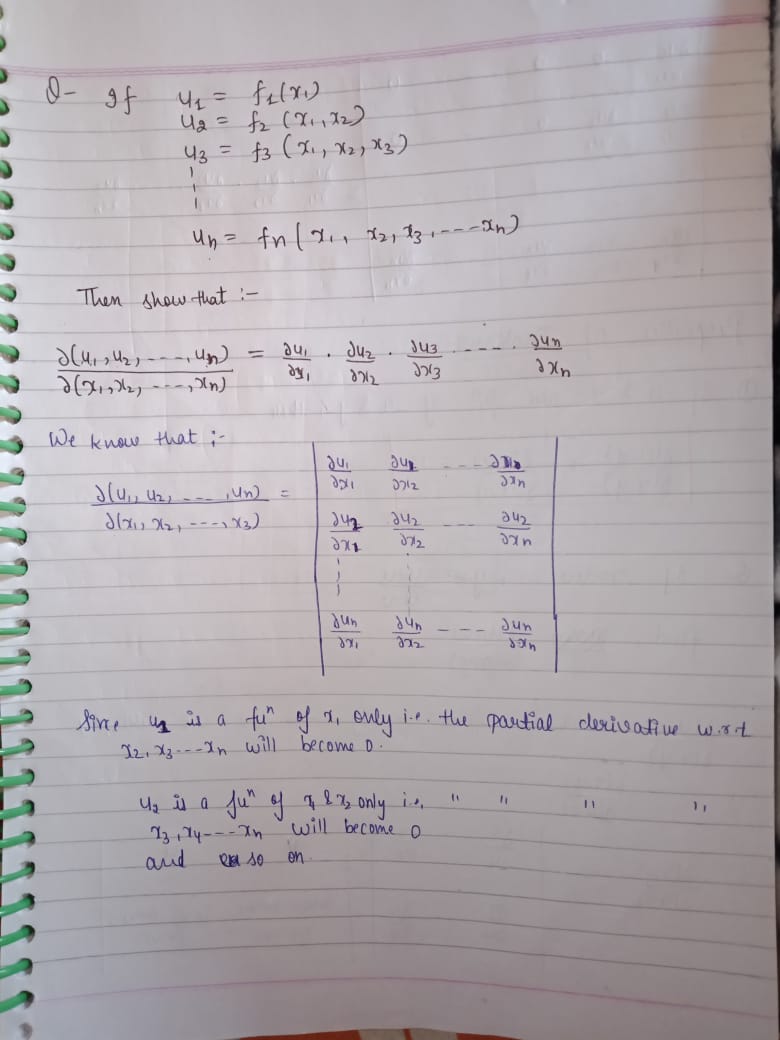 Q- If u1 = f1(x1)
u2 = f2 (x1, x2)
u3 = f3 (x1, x2, x3)
un = fn ( x1, x2, x3, ---- xn)
Then show that :-
∂(u1, u2, ----, un) / ∂(x1, x2, ----, xn) = ∂u1/∂x1 . ∂u2/∂x2 . ∂u3/∂x3 ----- ∂un/∂xn
We know that ;-
∂(u1, u2, ----, un) / ∂(x1, x2, ----, x3) =
| ∂u1/∂x1 ∂u1/∂x2 --- ∂u1/∂xn |
| ∂u2/∂x1 ∂u2/∂x2 --- ∂u2/∂xn |
| ∂un/∂x1 ∂un/∂x2 ---- ∂un/∂xn |
Since u1 is a fuⁿ of x1 only i.e. the partial derivative w.r.t
x2, x3 --- xn will become 0.
u2 is a fuⁿ of x1 & x2 only i.e, " " " "
x3, x4 --- xn will become 0
and so on.